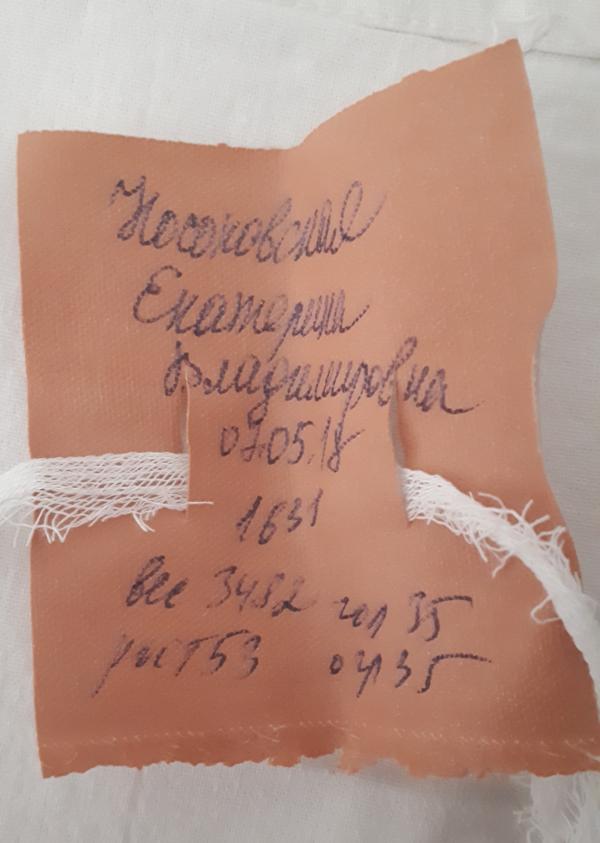 Носоновская
Екатерина
Владимировна
07.05.18
1631
вес 3482 гол 35
рост 53 огр 35